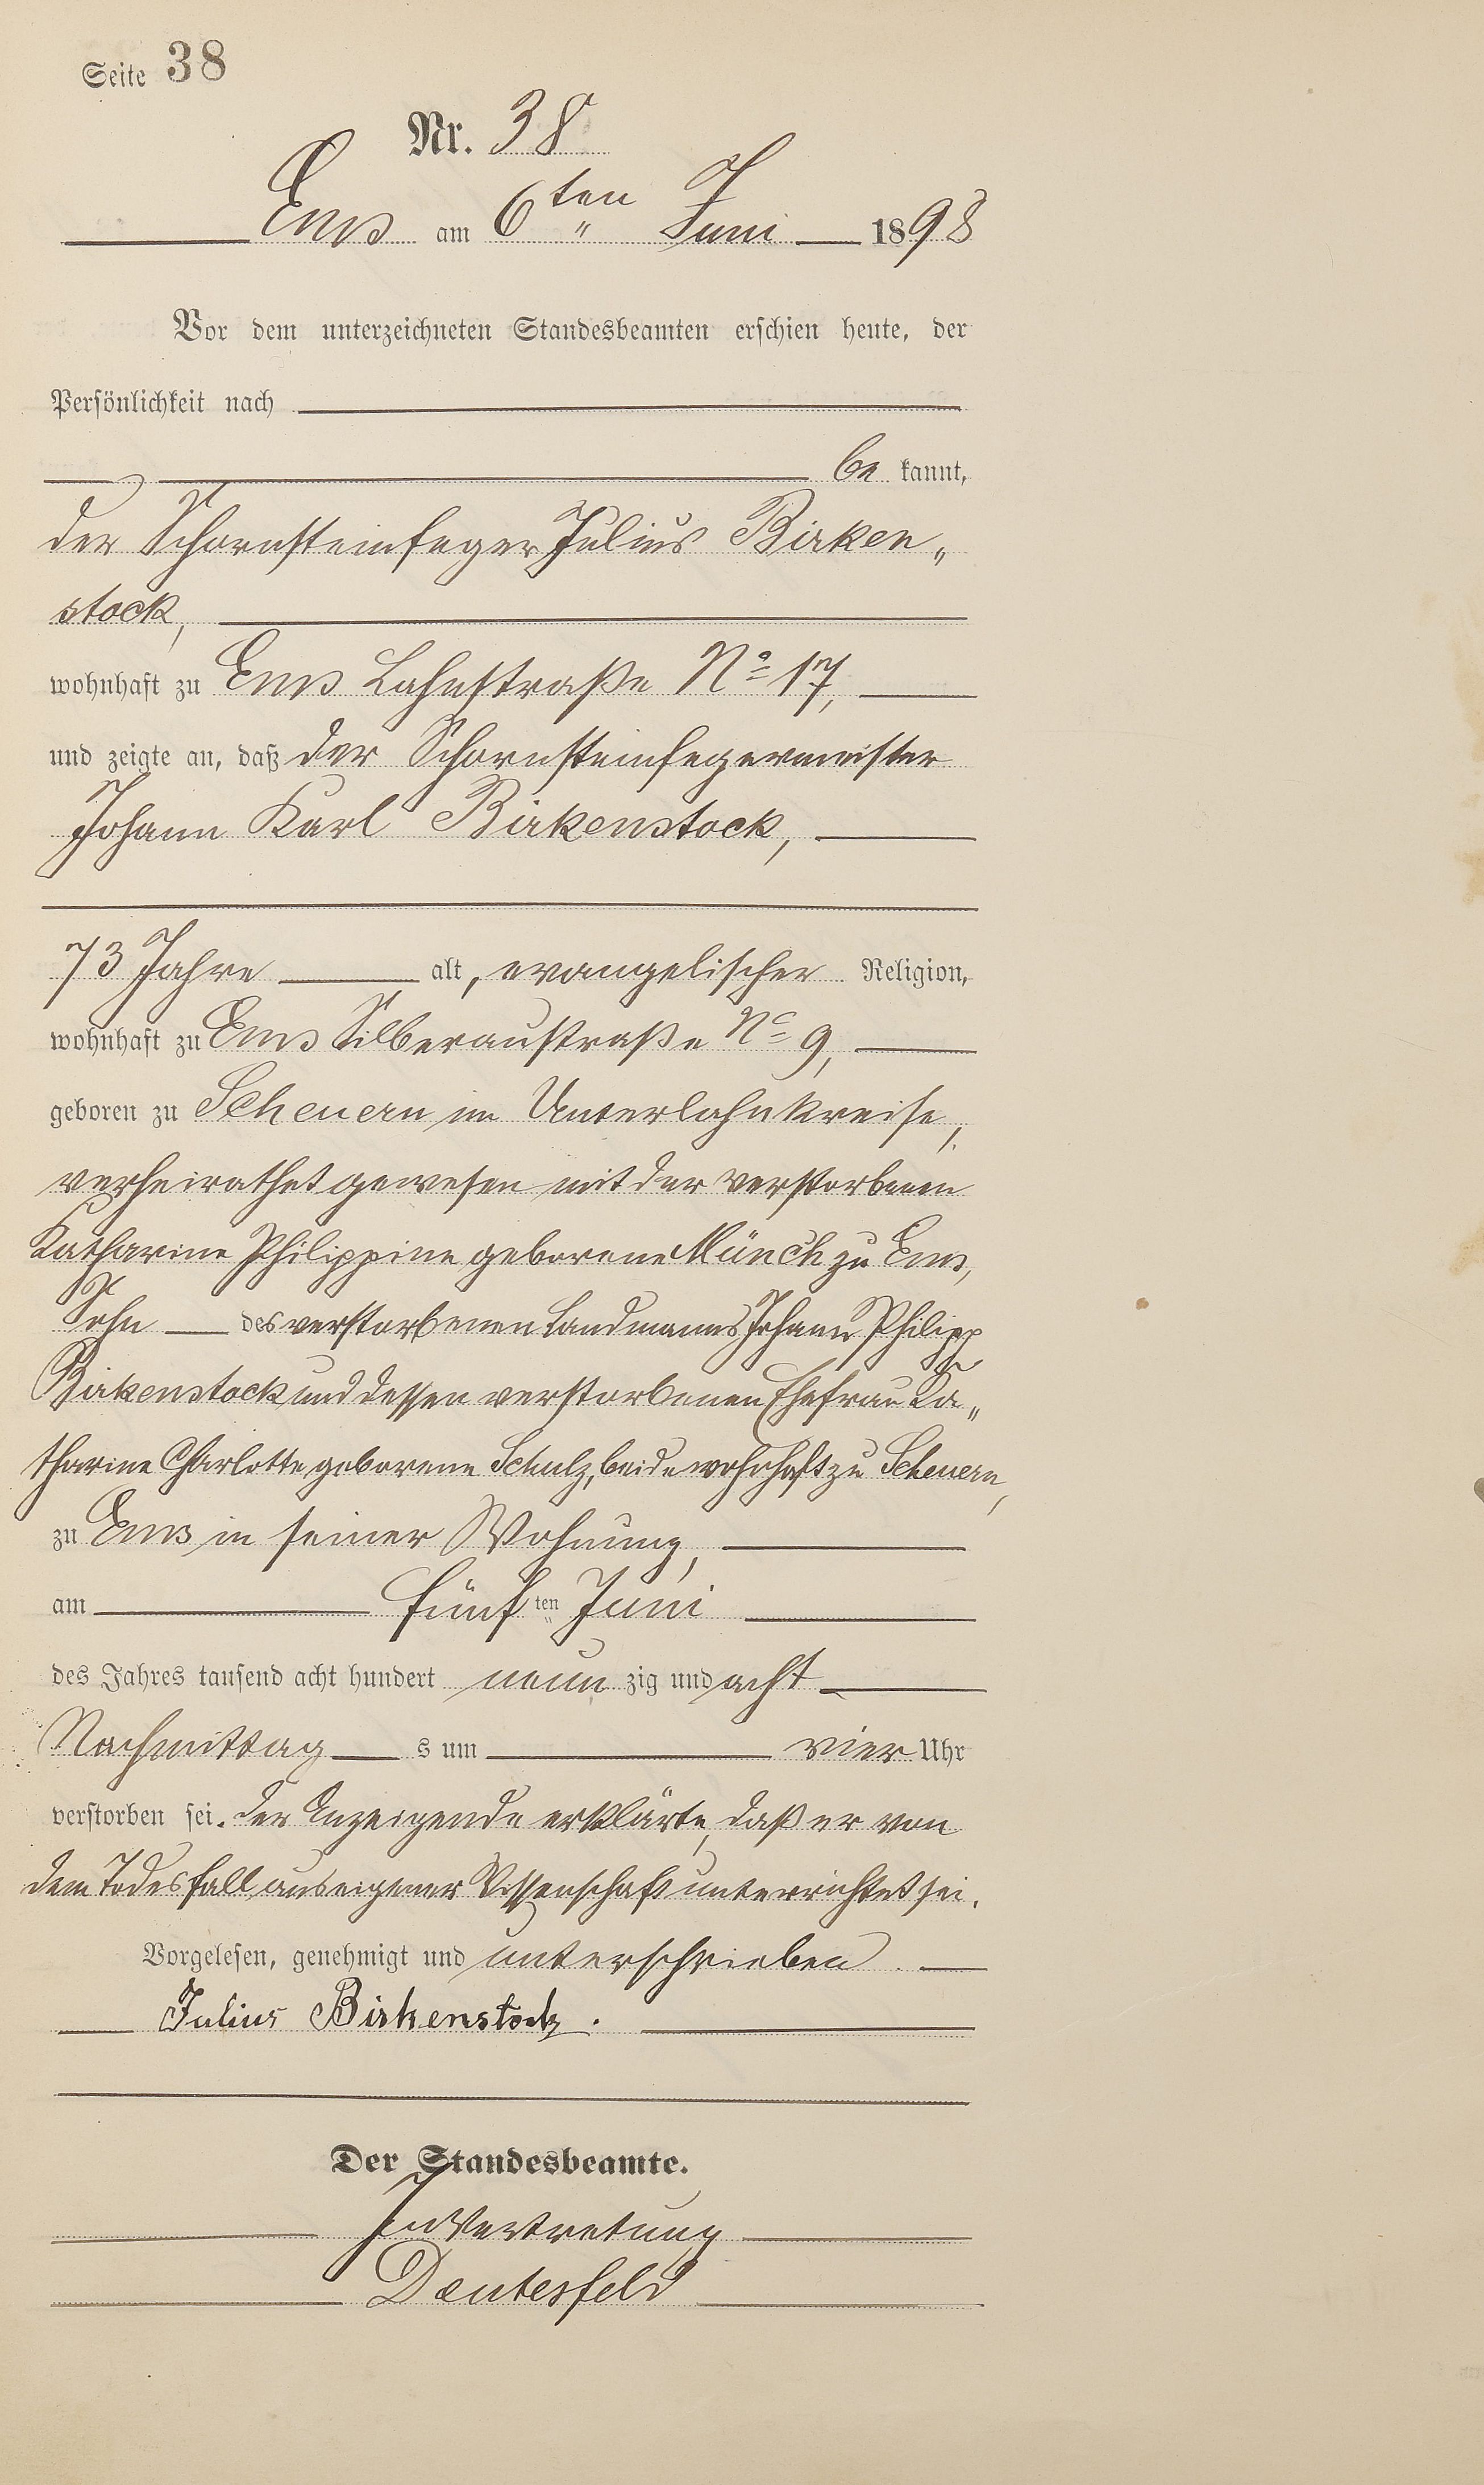 Seite 38
Nr. 38
Ems am 6ten Juni 1898
Vor dem unterzeichneten Standesbeamten erschien heute, der
Persönlichkeit nach
be kannt,
der Schornsteinfeger Julius Birken„
stock,
wohnhaft zu Ems Lahnstraße No 17,
und zeigte an, daß der Schornsteinfegermeister
Johann Karl Birkenstock,
73 Jahre alt, evangelischer Religion,
wohnhaft zu Ems Silberaustraße No 9,
geboren zu Scheuern im Unterlahnkreise,
verheirathet gewesen mit der verstorbenen
Katharine Philippine geborene Münch zu Ems,
Sohn des verstorbenen Landmanns Johann Philipp
Birkenstock und dessen verstorbenen Ehefrau Ka„
tharine Charlotte geborene Schulz, beide wohnhaft zu Scheuern,
zu Ems in seiner Wohnung,
am fünf ten Juni
des Jahres tausend acht hundert neun zig und acht
Nachmittag s um vier Uhr
verstorben sei. Der Anzeigende erklärte, daß er von
dem Todesfall aus eigener Wissenschaft unterrichtet sei.
Vorgelesen, genehmigt und unterschrieben.
Julius Birkenstock.
Der Standesbeamte.
In Vertretung